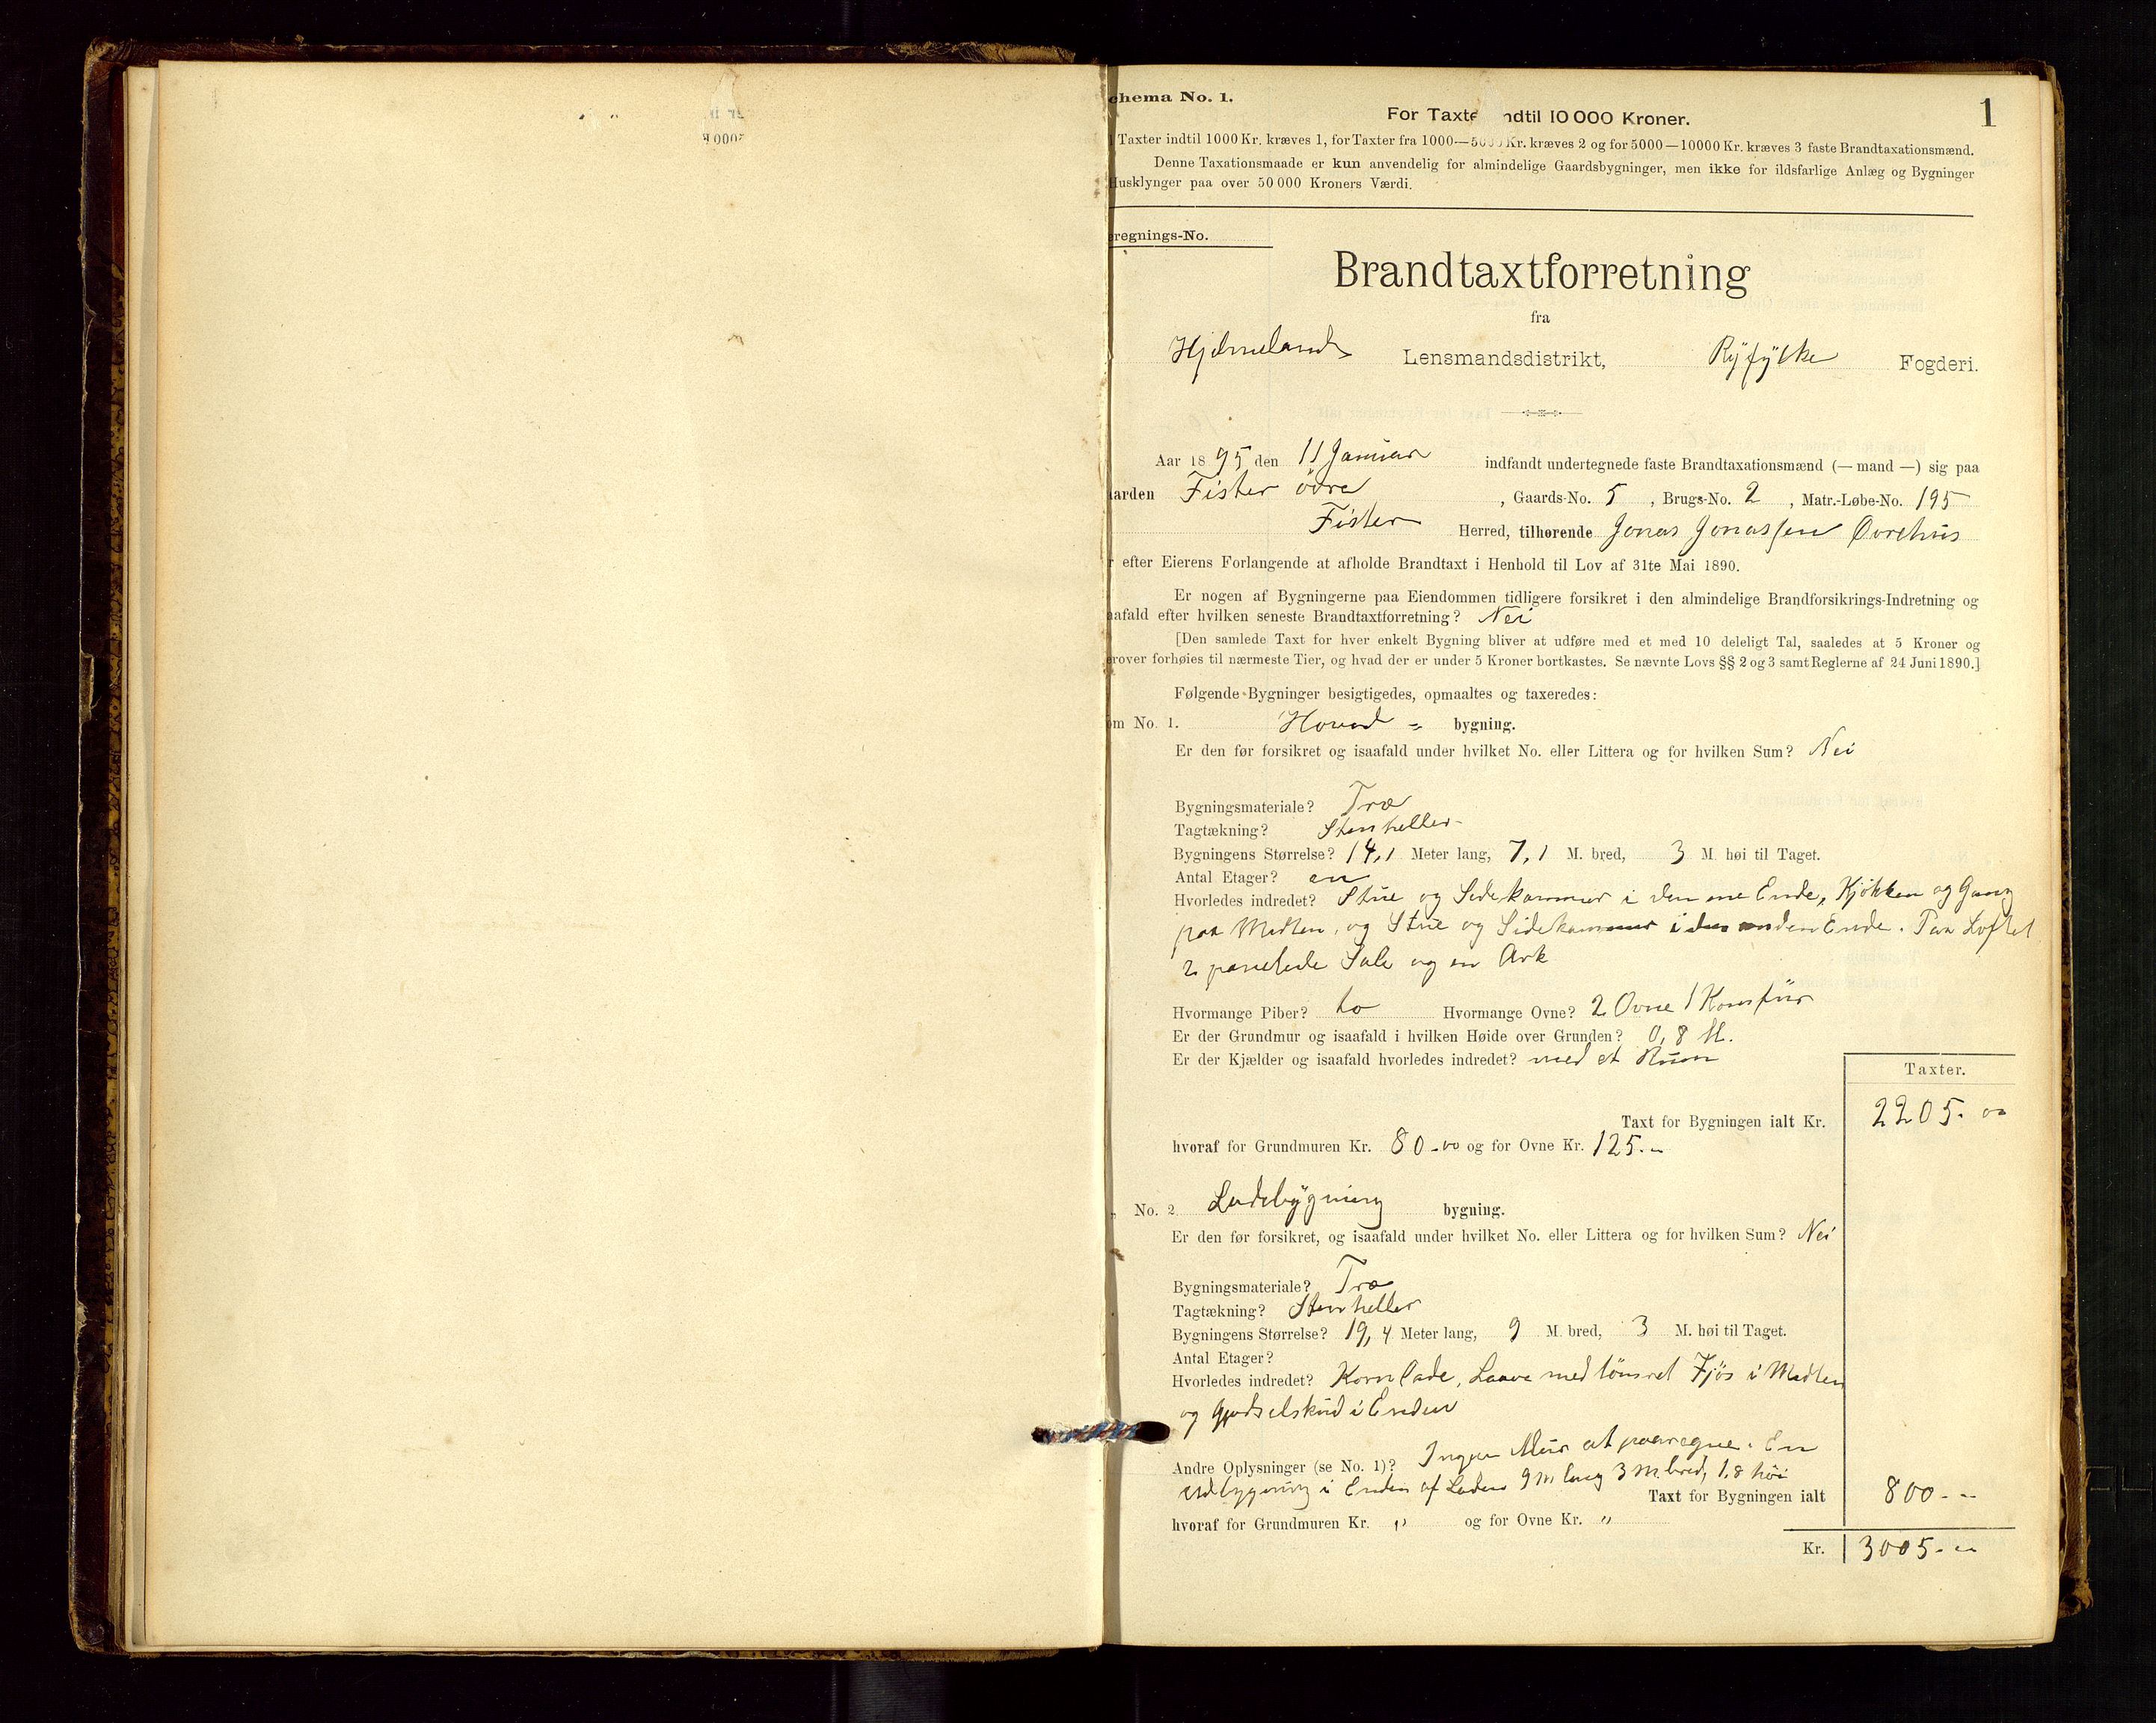 chema No. 1.
1
For Taxte ndtil 10 000 Kroner.
Taxter indtil 1000 Kr. kræves 1, for Taxter fra 1000—5000 Kr. kræves 2 og for 5000—10000 Kr. kræves 3 faste Brandtaxationsmænd.
Denne Taxationsmaade er kun anvendelig for almindelige Gaardsbygninger, men ikke for ildsfarlige Anlæg og Bygninger
Husklynger paa over 50 000 Kroners Værdi.
regnings-No.
Brandtaxtforretning
fra
Hjelmelands Lensmandsdistrikt, Ryfylke Fogderi.
Aar 1895, den 11 Januar indfandt undertegnede faste Brandtaxationsmænd (— mand —) sig paa
aarden Fister övre, Gaards-No. 5, Brugs-No. 2, Matr.-Løbe-No. 195
Fister Herred, tilhørende Jonas Jonassen Övrehus
r efter Eierens Forlangende at afholde Brandtaxt i Henhold til Lov af 31te Mai 1890.
Er nogen af Bygningerne paa Eiendommen tidligere forsikret i den almindelige Brandforsikrings-Indretning og
aafald efter hvilken seneste Brandtaxtforretning? Nei
[Den samlede Taxt for hver enkelt Bygning bliver at udføre med et med 10 deleligt Tal, saaledes at 5 Kroner og
erover forhøies til nærmeste Tier, og hvad der er under 5 Kroner bortkastes. Se nævnte Lovs §§ 2 og 3 samt Reglerne af 24 Juni 1890.]
Følgende Bygninger besigtigedes, opmaaltes og taxeredes:
om No. 1. Hoved - bygning.
Er den før forsikret og isaafald under hvilket No. eller Littera og for hvilken Sum? Nei
Bygningsmateriale? Træ
Tagtækning? Stenheller
Bygningens Størrelse? 14,1 Meter lang, 7,1 M. bred, 3 M. høi til Taget.
Antal Etager? en
Hvorledes indredet? Stue og Sidekammer i den ene Ende, Kjökken og Gang
paa Midten, og Stue og Sidekammer i den anden Ende. Paa Loftet
2 panelede Sale og en Ark
Hvormange Piber? to Hvormange Ovne? 2 Ovne 1 Komfür
Er der Grundmur og isaafald i hvilken Høide over Grunden? 0,8 M.
Er der Kjælder og isaafald hvorledes indredet? med et Rum
Taxter.
Taxt for Bygningen ialt Kr. 2205. 00
hvoraf for Grundmuren Kr. 80-00 og for Ovne Kr. 125.-
No. 2. Ladebygning bygning.
Er den før forsikret, og isaafald under hvilket No. eller Littera og for hvilken Sum? Nei
Bygningsmateriale? Træ
Tagtækning? Stenheller
Bygningens Størrelse? 19,4 Meter lang, 9 M. bred, 3 M. høi til Taget.
Antal Etager?
Hvorledes indredet? Kornlade, Laave med tömret Fjös i Midten
og Gjödselskud i Enden
Andre Oplysninger (se No. 1)? Ingen Mur at paaregne. En
Udbygning i Enden af Laden 9 m lang 3 m bred, 1,8 höi
Taxt for Bygningen ialt 800 - -
hvoraf for Grundmuren Kr. " og for Ovne Kr. "
Kr. 3005 - -